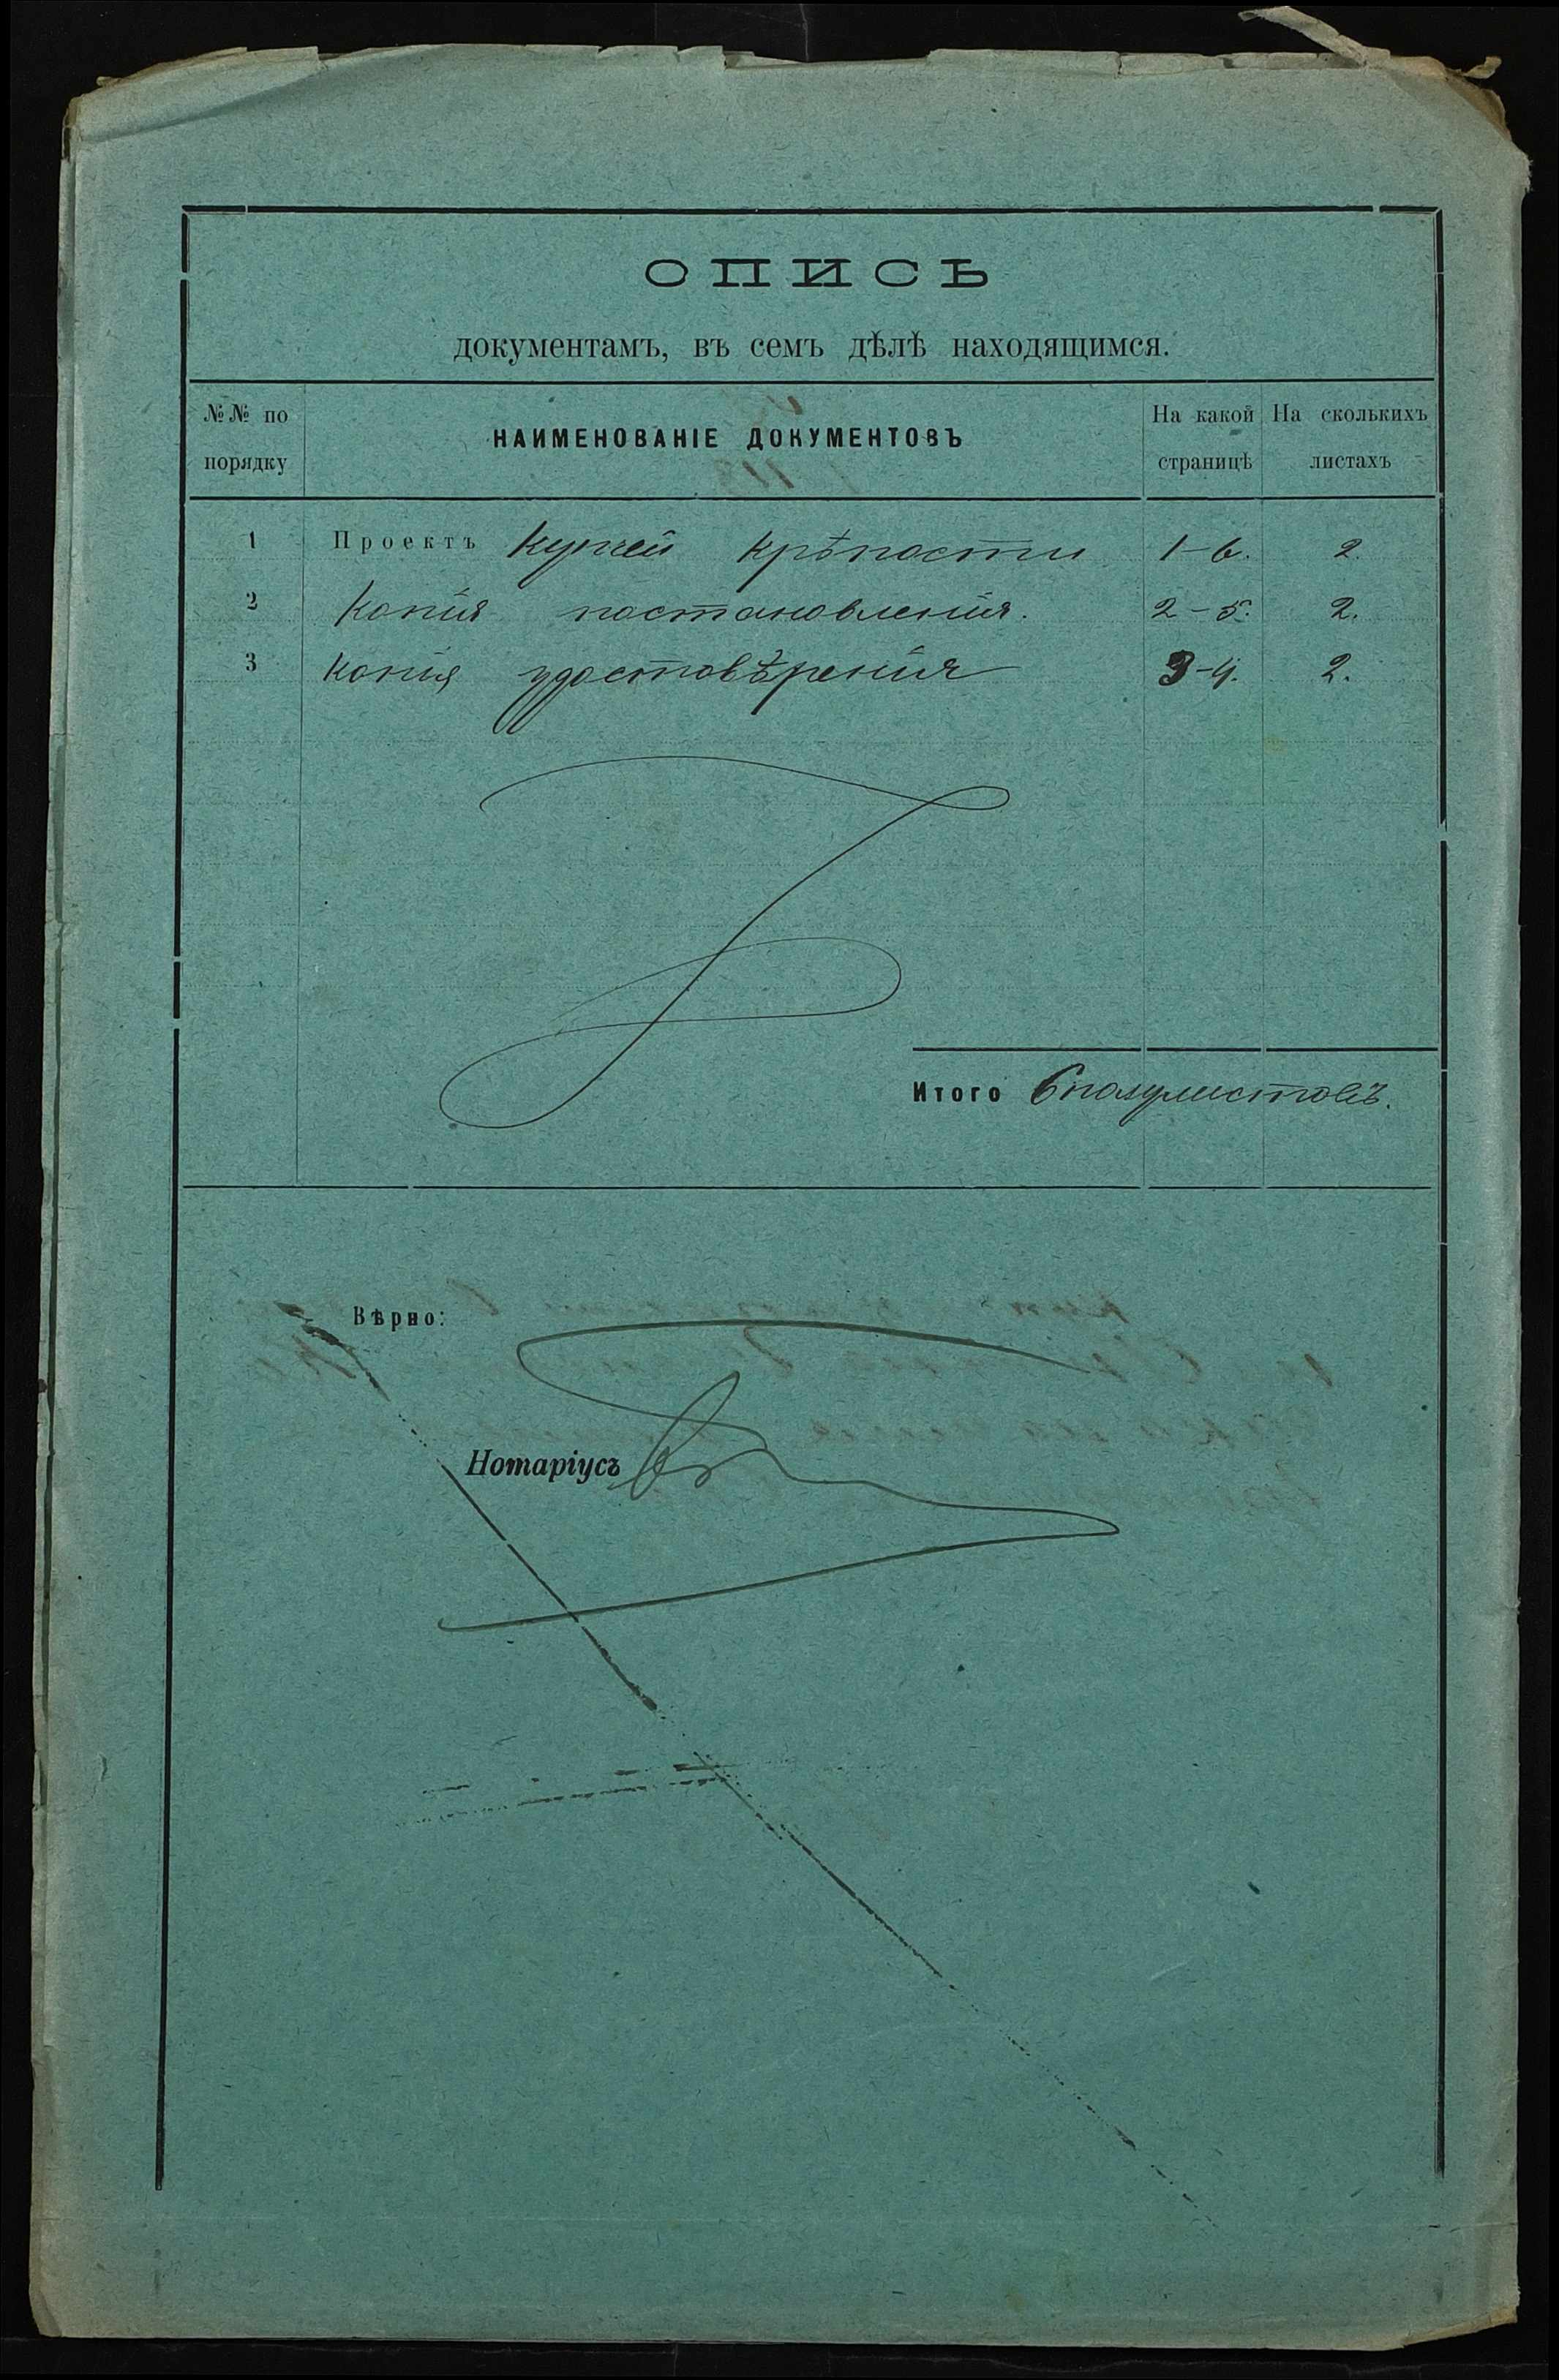 ОПИСЬ
документамъ, въ семъ дѣлѣ находящимся.
№№ по порядку
НАИМЕНОВАНІЕ ДОКУМЕНТОВЪ
На какой страницѣ
На сколькихъ листахъ
1 Проектъ Купчей крѣпости 1-6. 2.
2 Копія постановленія. 2-5. 2.
3 Копія удостовѣренія 3-4. 2.
Итого 6 полулистовъ.
Вѣрно:
Нотаріусъ